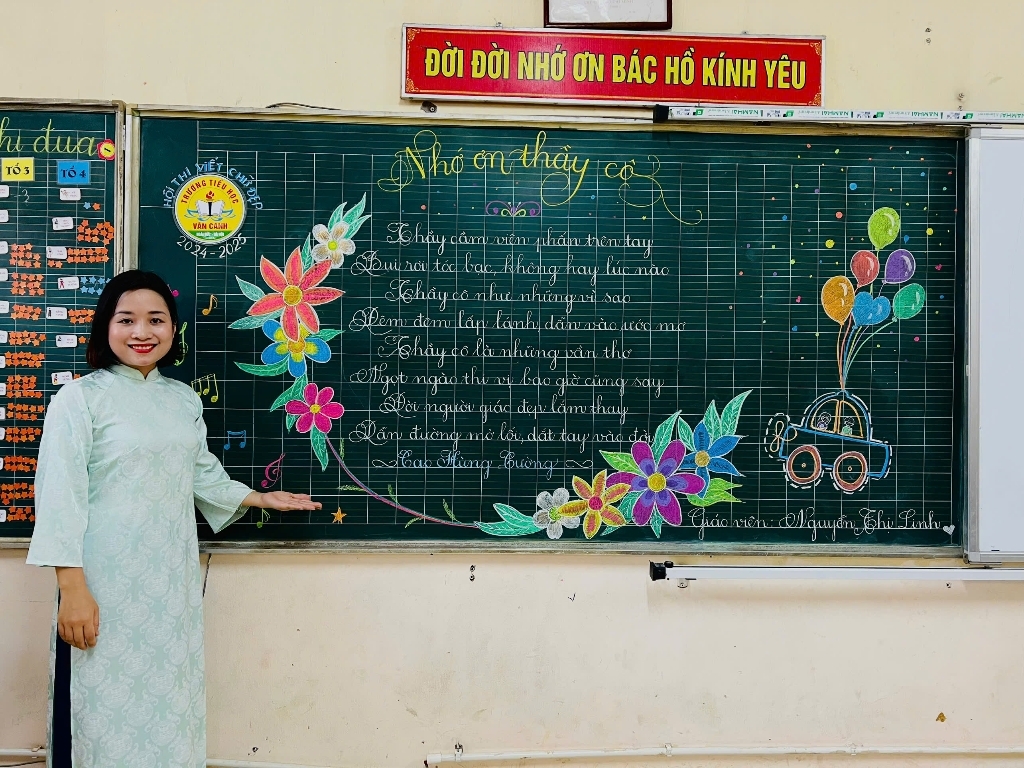 ĐỜI ĐỜI NHỚ ƠN BÁC HỒ KÍNH YÊU
NAMHẢI
hi đua
TỔ 3
TỔ 4
HỘI THI VIẾT CHỮ ĐẸP
TRƯỜNG TIỂU HỌC
VÂN CANH
2024-2025
Nhớ ơn thầy cô
Thầy cầm viên phấn trên tay
Bụi rơi tóc bạc, không hay lúc nào
Thầy cô như những vì sao
Đêm đêm lấp lánh, dẫn vào ước mơ
Thầy cô là những vần thơ
Ngọt ngào thi vị bao giờ cũng say
Đời người giáo đẹp lắm thay
Dẫn đường mở lối, dắt tay vào đời
Cao Hùng Cường
Giáo viên: Nguyễn Thị Linh